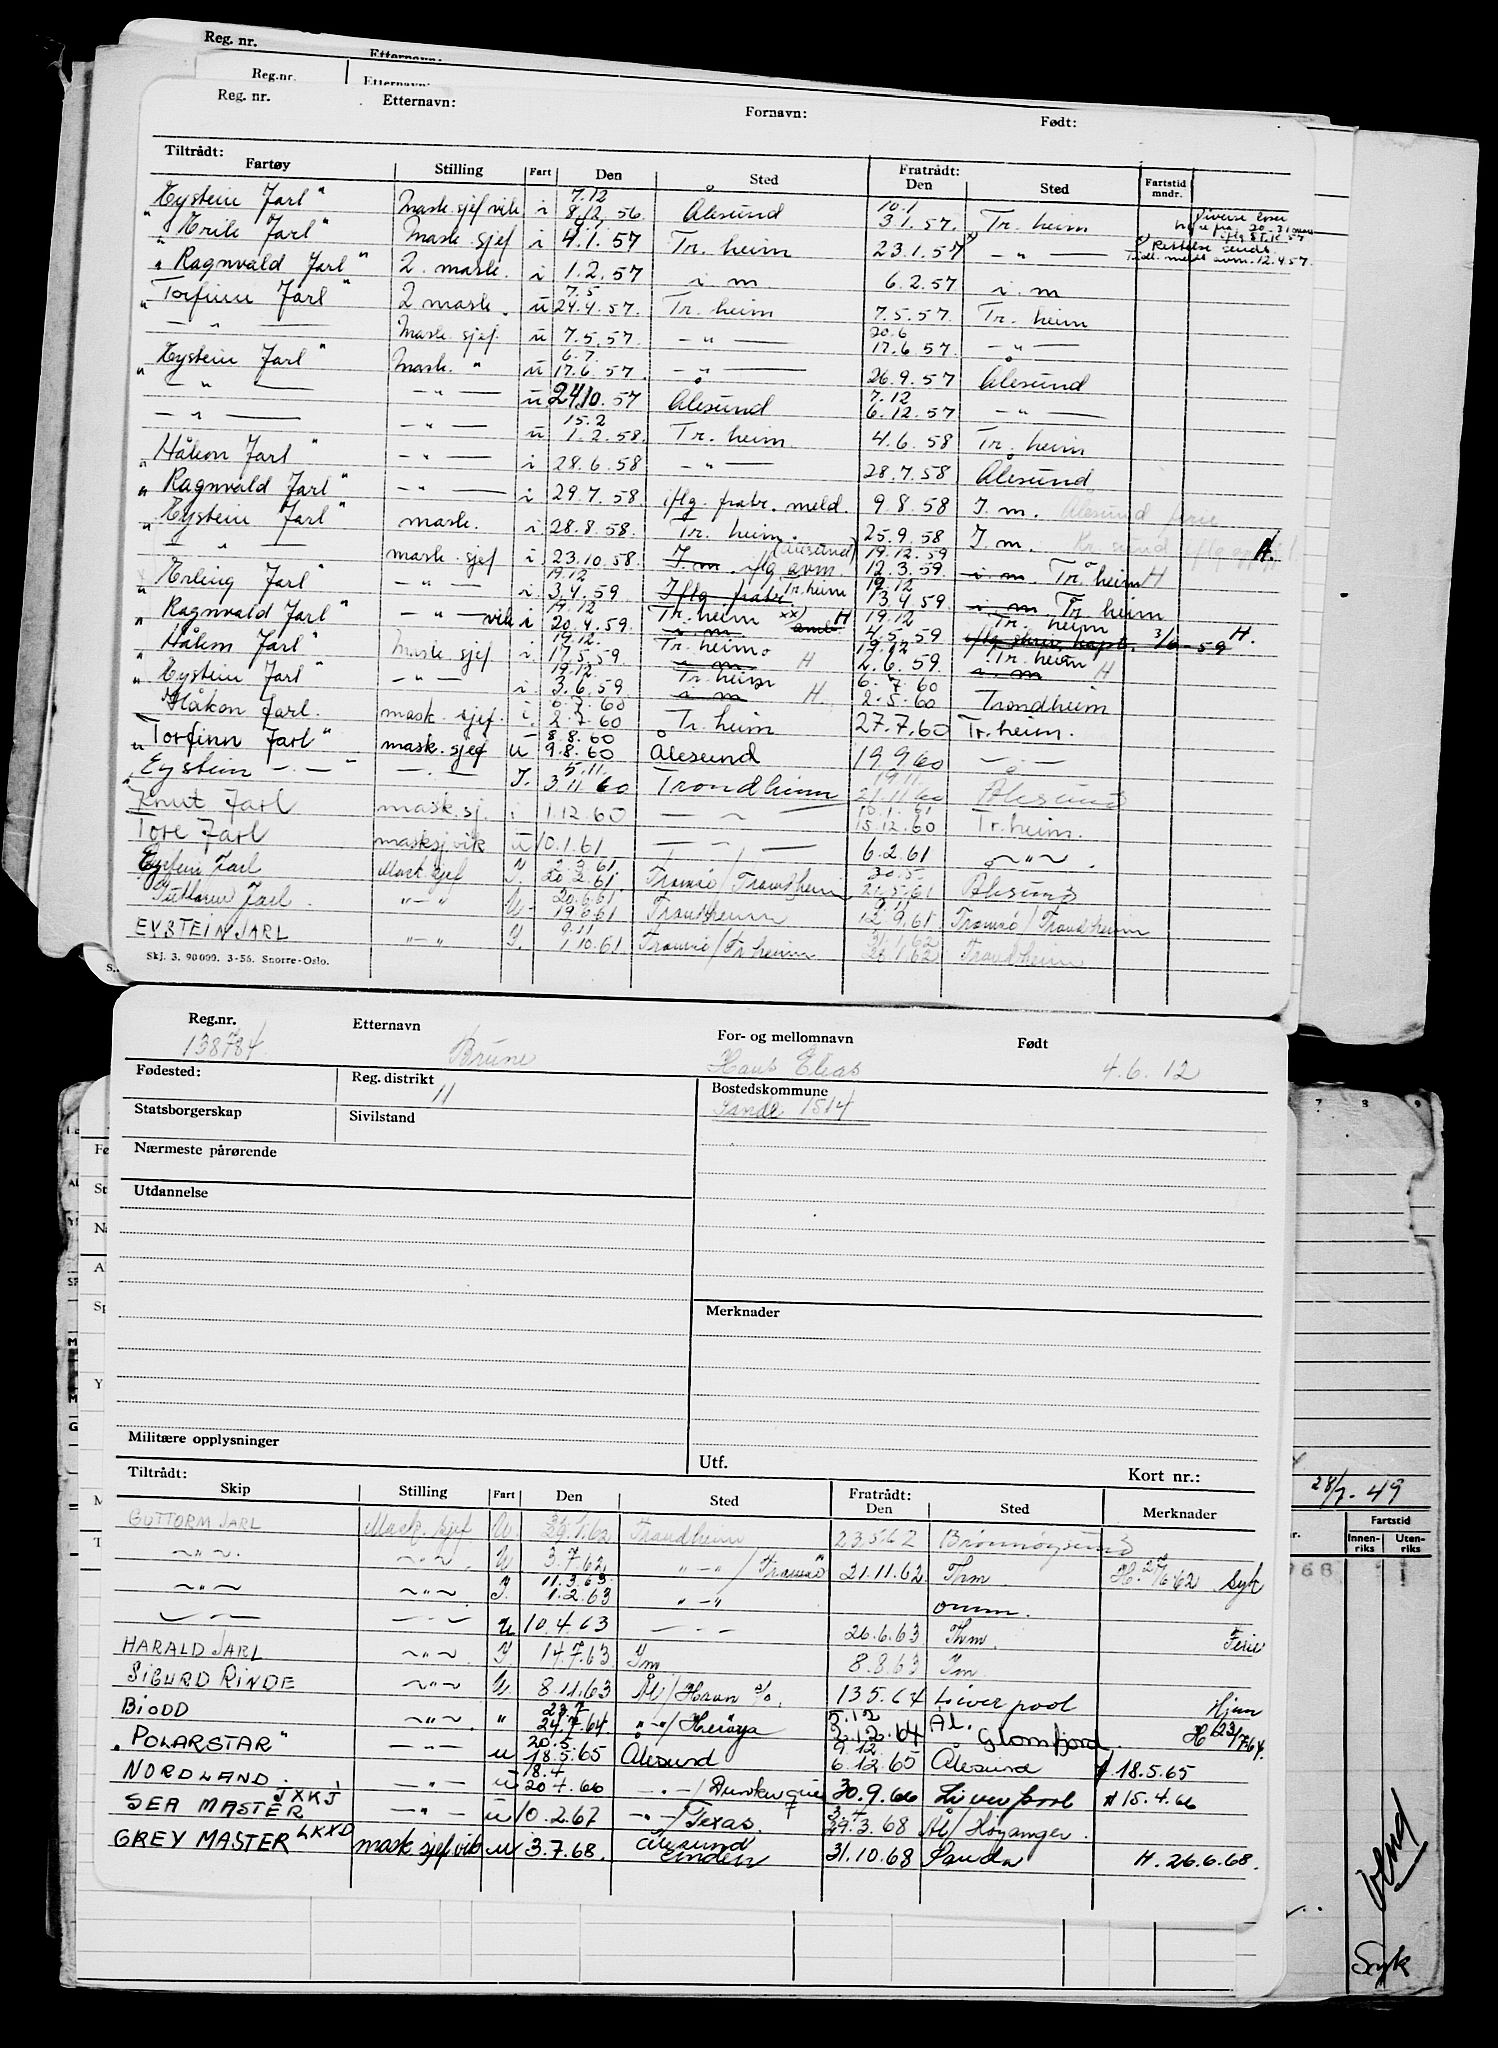 Reg. nr. Etternavn:
Reg.nr. Etternavn:
Reg. nr. Etternavn: Fornavn: Født:
Tiltrådt: Fratrådt:
Fartøy Stilling Fart Den Sted Den Sted Fartstid mndr.
7.12 10.1
"Eystein Jarl" Mask. sjef vik i 8/12 56. Ålesund 3.1.57. Tr. heim
" Jarl" Mask. sjef i 4.1.57 Tr. heim 23.1.57 x) — " —
"Ragnvald Jarl" 2. mask. i 1.2.57 i m 6.2.57 i. m
7.5
"Torfinn Jarl" 2 mask. u 24.4.57. Tr. heim 7.5.57. Tr. heim
20.6
— " — Mask. sjef. u 7.5.57. — " — 17.6 57. — " —
6.7.
"Eystein Jarl" Mask. " u 17.6 57. — " — 26.9.57 Ålesund
7.12
— " — — " — u 24.10.57 Ålesund 6.12.57 — " —
15.2
— " — — " — u 1.2.58. Tr. heim 4.6.58 Tr. heim
"Håkon Jarl" — " — i 28.6.58 — " — 28.7.58 Ålesund
"Ragnvald Jarl" — " — i 29.7.58. iflg. fratr. meld. 9.8.58 I. m. Ålesund ferie
"Eystein Jarl" mask. i 28.8.58. Tr. heim. 25.9.58 I. m.
(Ålesund) 19.12.59
" — " — mask. sjef i. 23.10.58. I. m. iflg avm. 12.3.59. i. m. Tr. heim H
19.12 Tr. heim 19.12
"Erling Jarl" — " — i. 3.4.59 Iflg. fratr. 3.4.59 i m Tr. heim
19.12 19.12 Tr. heim
"Ragnvald Jarl" — " — vik i 20.4.59. Tr. heim i. m. xx) H 4.5.59 3/6-59 H.
19.12. 19.12
"Håkon Jarl" Mask. sjef i. 17.5.59 Tr. heim. i m H 2.6.59. Tr. heim i m H
19.12. 6.7.60
"Eystein Jarl" — " — i. 3.6.59 Tr. heim i m H. 2.5.60 Trondheim
6.7.60
Håkon Jarl. mask. sjef. i. 2.7.60 Tr. heim 27.7.60 Tr. heim.
8.8.60
"Torfinn Jarl" mask. sjef u 9.8.60 Ålesund 19 9 60 — " —
5.11. 19 11
"Eystein — . — " — . — I. 3.11 60 Trondheim 21.11 60 Ålesund
10.1.61
Knut Jarl mask. sj. i 1.12.60 — " — 15.12.60 Tr. heim.
Tore Jarl masksj vik u 10.1.61 — " — 6.2.61 ~ " ~ .
30.5
Eystein Jarl Mask sjef I. 20.2.61. Tromsö / Trondheim 21.5.61 Ålesund
20.6.61 9.11
Guttorm Jarl " — " U. 19.6.61 Trondheim 12.9.61 Tromsö / Trondheim
9.11
EYSTEIN JARL " — " I. 1.10.61 Tromsö / Tr heim 26.1.62 Trondheim
Skj. 3. 90 000. 3-56. Snorre-Oslo.
Reg.nr. Etternavn For- og mellomnavn Født
138784 Brune Hans Elias 4.6.12
Fødested: Reg. distrikt Bostedskommune
11 Sande 1514
Statsborgerskap Sivilstand
Nærmeste pårørende
Utdannelse
Merknader
Militære opplysninger Utf. Kort nr.:
Tiltrådt: Fratrådt:
Skip Stilling Fart Den Sted Den Sted Merknader
GUTTORM JARL Mask. sjef U. 29.1.62 Trondheim 23.5.62 Brønnøysund
~ " ~ . ~ " ~ . U 3.7.62 " — " / Tromsö 21.11.62 Thm Syk
11.3.63
~ " ~ ~ " ~ . I. 1.2.63 " — " omm.
~ — ~ — " — U 10.4.63 — . — 26.6.63 Thm. Ferie
HARALD JARL ~ " ~ . I 14.7.63 Im. 8.8.63 Im.
SIGURD RINDE ~ " ~ U. 8.11.63 Ål / 13.5.64 Liverpool Hjem
23.7 2.12
BIODD ~ " ~ . " 24.7.64. " — " / Herøya 2.12.64 Ål. Glomfjord. H 23/7.64.
20.5. 9.12.
"POLARSTAR" — " — u 18.5.65 Ålesund 6.12.65 Ålesund H 18.5.65
18.4
NORDLAND. — " — u 20 4.66 — . — / Dunkerque 30.9.66 Liverpool H 15.4.66
JXKJ
SEA MASTER — " — u 10.2.67 — " — / Texas. 29.3.68 Ål / Høyanger.
LKXD Ålesund
GREY MASTER mask sjef vik u 3.7.68. Emden 31.10.68 Sauda H. 26.6.68.
7 8 9
28/7-49
Fartstid
Innenriks Utenriks
Vend
Syk